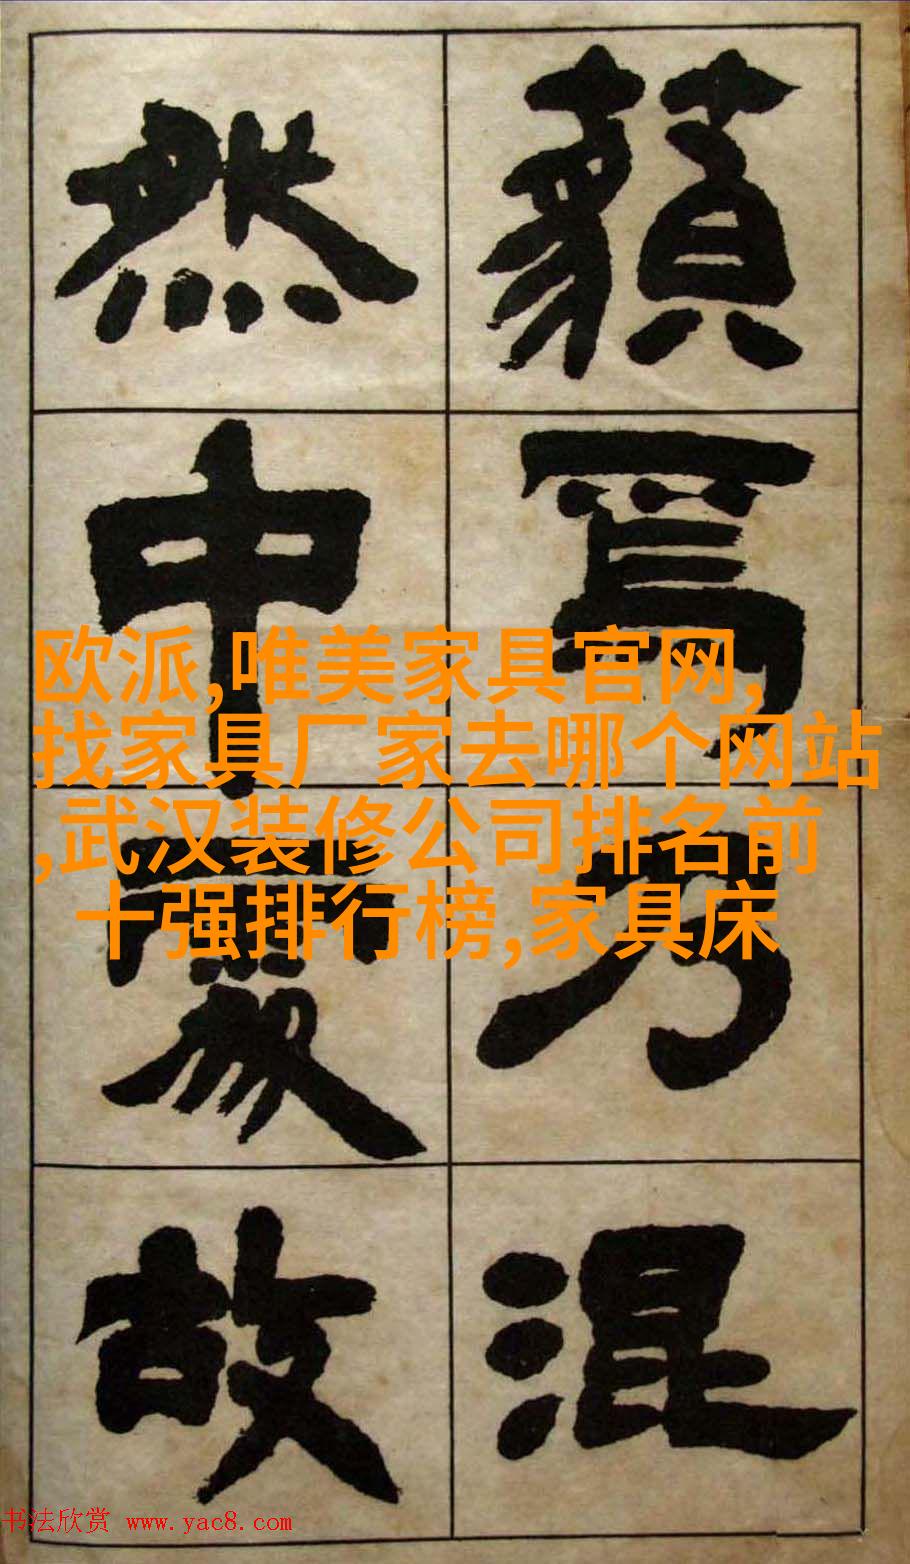 藐焉乃混
然中處故
欧派,唯美家具官网,
找家具厂家去哪个网站
,武汉装修公司排名前
十强排行榜,家具床
书法欣赏 www.yac8.com